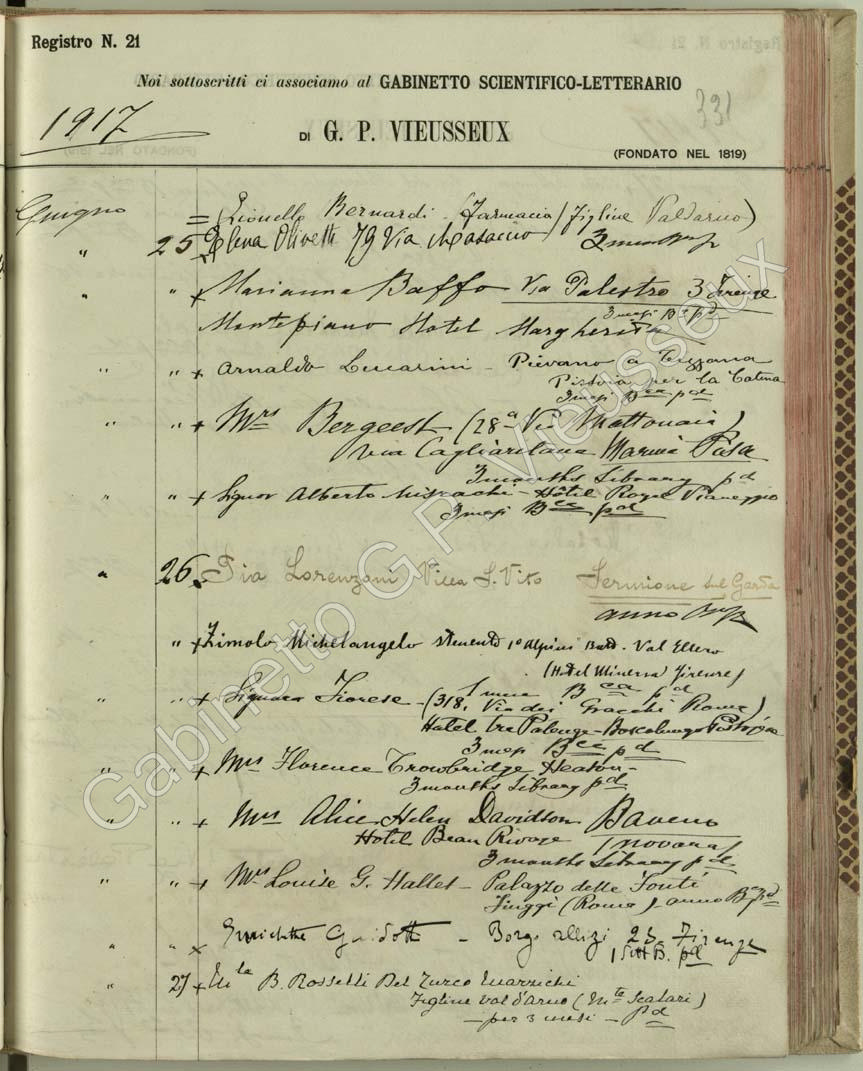 Registro N. 21
Noi sottoscritti ci associamo al GABINETTO SCIENTIFICO-LETTERARIO
331
1917
DI G. P. VIEUSSEUX
(FONDATO NEL 1819)
Giugno = (Lionello Bernardi - Farmacia / Figline Valdarno)
" 25 Elena Olivetti 79 Via Masaccio 3 mesi
" " x Marianna Baffo Via Palestro 3 Firenze
3 mesi Bca pd
Montepiano Hotel Margherita
" " x Arnaldo - Pievano a
Pistoia per la Catena
3 mesi Bca pd
" " x Mrs Bergeest (28a Via Mattonaia)
via Marina Pisa
3 months Library pd
" " x Signor Alberto Misrachi - Hôtel Royal Viareggio
3 mesi Bca pd
" 26. Pia Lorenzoni Villa S. Vito Sermione sul Garda
anno
" x Zimolo Michelangelo 1º Alpini Batt. Val Ellero
(Hotel Minerva Firenze)
1 mese Bca pd
" " x Signora Fiorese - (318, Via dei Gracchi Roma)
Hotel tre Potenze - Boscolungo Pistoiese
3 mesi Bca pd
" " x Mrs Florence Trowbridge Heaton -
3 months Library pd
" " x Mrs Alice Helen Davidson Baveno
Hotel Beau Rivage (Novara)
3 months Library pd
" " x Mrs Louise G. Hallet - Palazzo delle Fonti
Fiuggi (Roma) - anno Bca pd
" " x Enrichetta Guidotti - Borgo Albizi 25 - Firenze
1 Sett B. pd
27 x B. Rosselli Del Turco
Figline Val d'Arno (Scalari)
- per 3 mesi - pd
Gabinetto G.P. Vieusseux